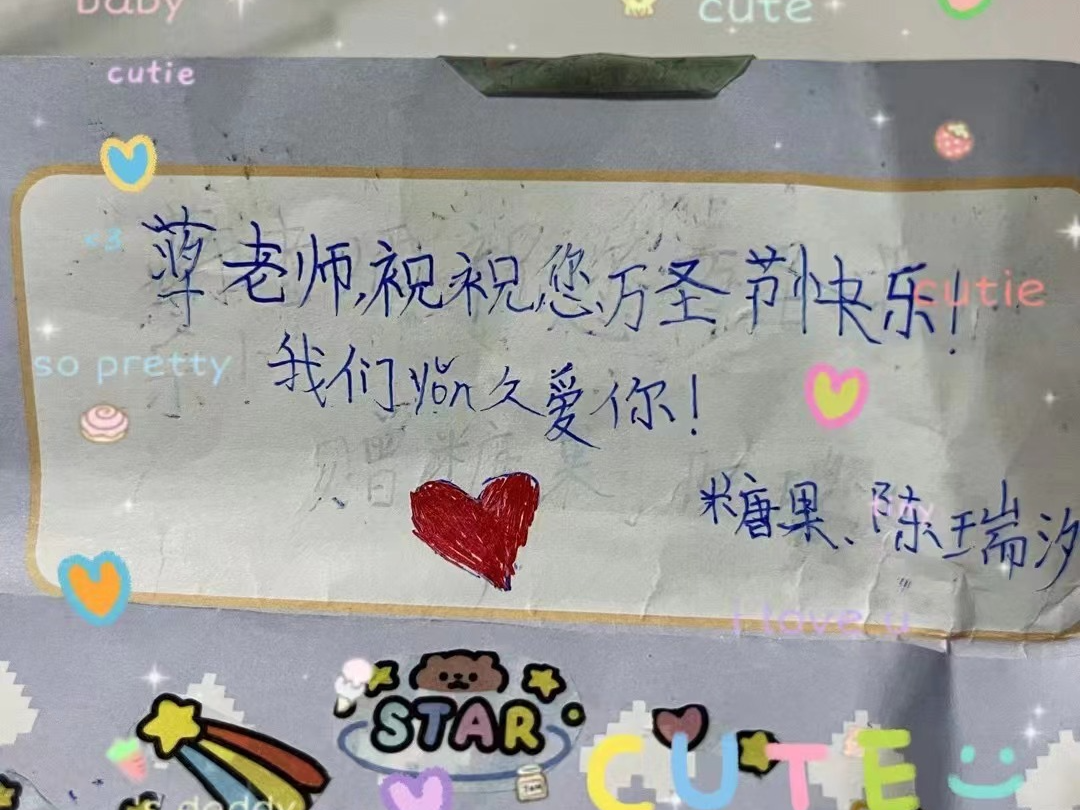 baby
cute
cutie
老师,祝祝您万圣节快乐!
cutie
so pretty
我们yǒn久爱你!
糖果、陈瑞汐
i love u
STAR
CUTE
daddy